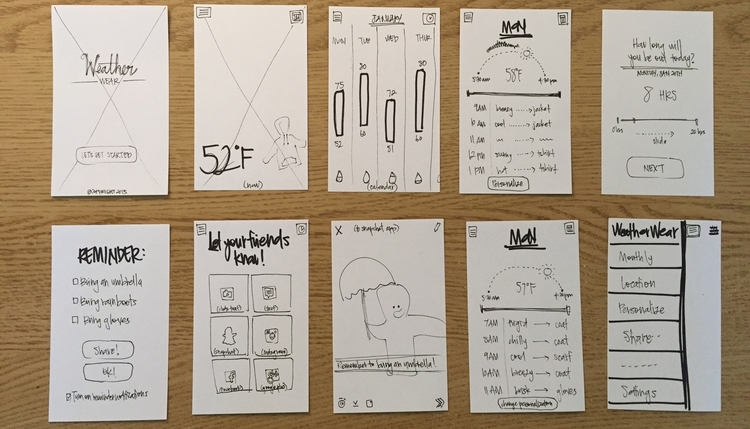 Weather
WEAR
LET'S GET STARTED
©COPYRIGHT 2015
52°F
(now)
JANUARY
MON TUE WED THUR
75 80 72 80
52 60 51 60
(calendar)
MON
58°F
5:30am 4:30pm
9AM breezy jacket
10AM cool jacket
11AM
12PM sunny tshirt
1PM hot tshirt
Personalize
How long will
you be out today?
MONDAY, JAN 20TH
8 HRS
0hrs 20 hrs
slide
NEXT
REMINDER:
Bring an umbrella
Bring rainboots
Bring gloves
Share!
OK!
Turn on reminder notifications
Let your friends
know!
(text)
(snapchat)
(instagram)
(facebook)
(to snapchat app)
Remember to bring an umbrella!
MON
57°F
5:30am 4:30pm
7AM frigid coat
8AM chilly coat
9AM cool scarf
10AM breezy coat
11AM brisk gloves
change personalization
WeatherWear
Monthly
Location
Personalize
Share
Settings